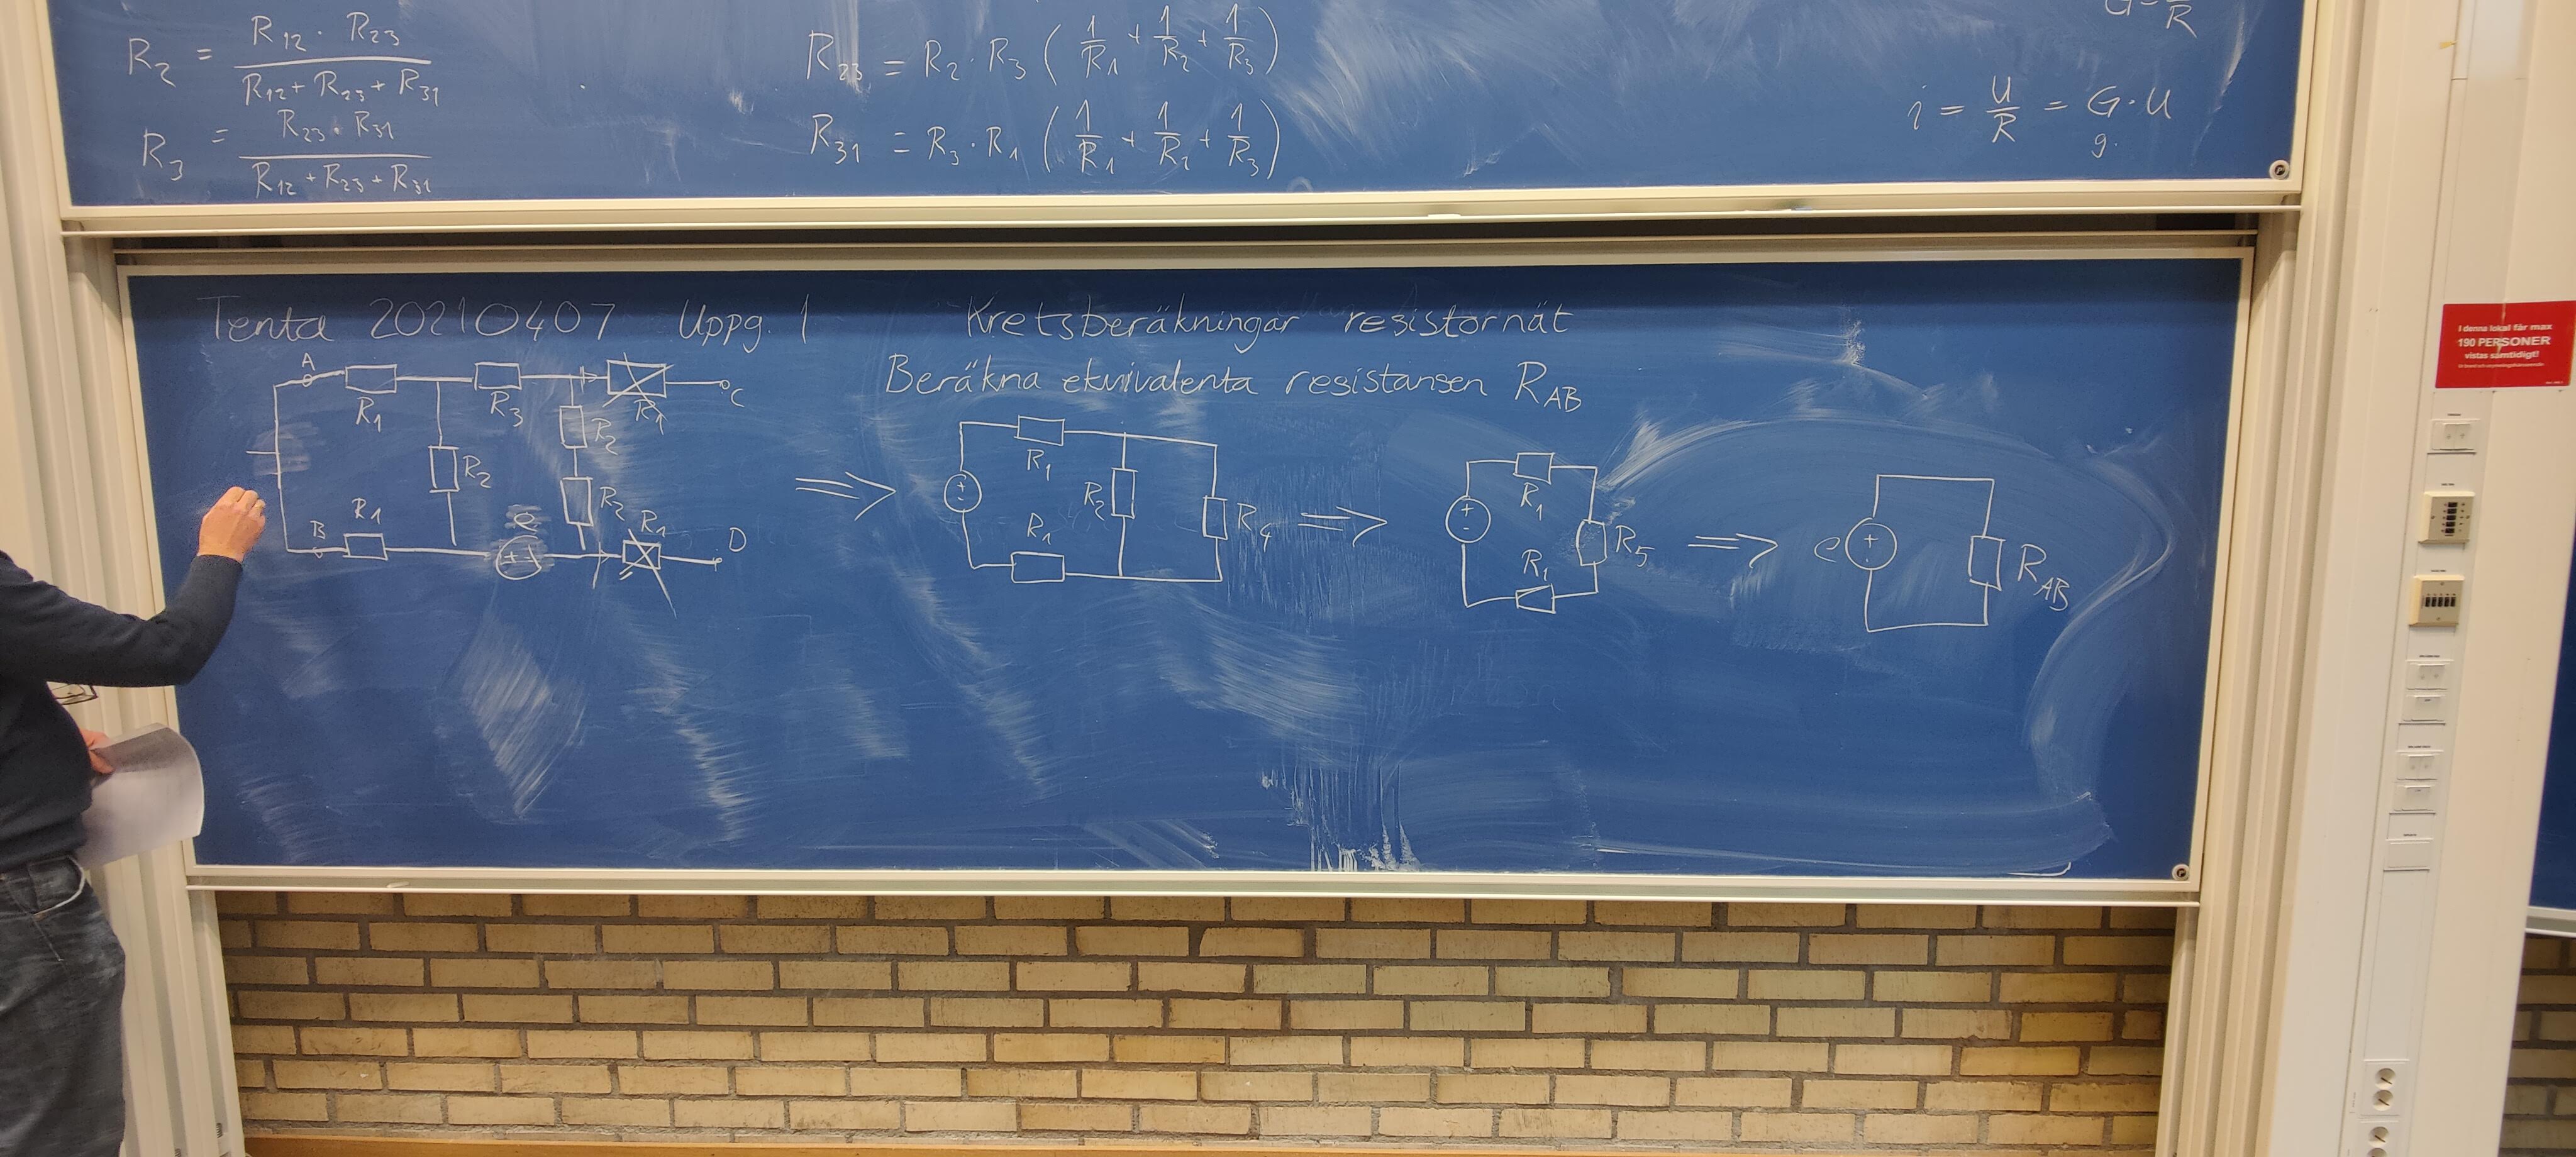 R₂ = R₁₂ · R₂₃ / R₁₂ + R₂₃ + R₃₁
R₃ = R₂₃ · R₃₁ / R₁₂ + R₂₃ + R₃₁
R₂₃ = R₂ · R₃ ( 1/R₁ + 1/R₂ + 1/R₃ )
R₃₁ = R₃ · R₁ ( 1/R₁ + 1/R₂ + 1/R₃ )
i = U/R = G · U
g.
Tenta 20210407 Uppg. 1 Kretsberäkningar resistornät
Beräkna ekvivalenta resistansen R_AB
A R₁ R₃ R₁ C
R₂ R₂
R₂
B R₁ e + - R₁ D
⇒
R₁
+ - R₂ R₄
R₁
⇒
R₁
+ - R₅
R₁
⇒
e + - R_AB
I denna lokal får max
190 PERSONER
vistas samtidigt!